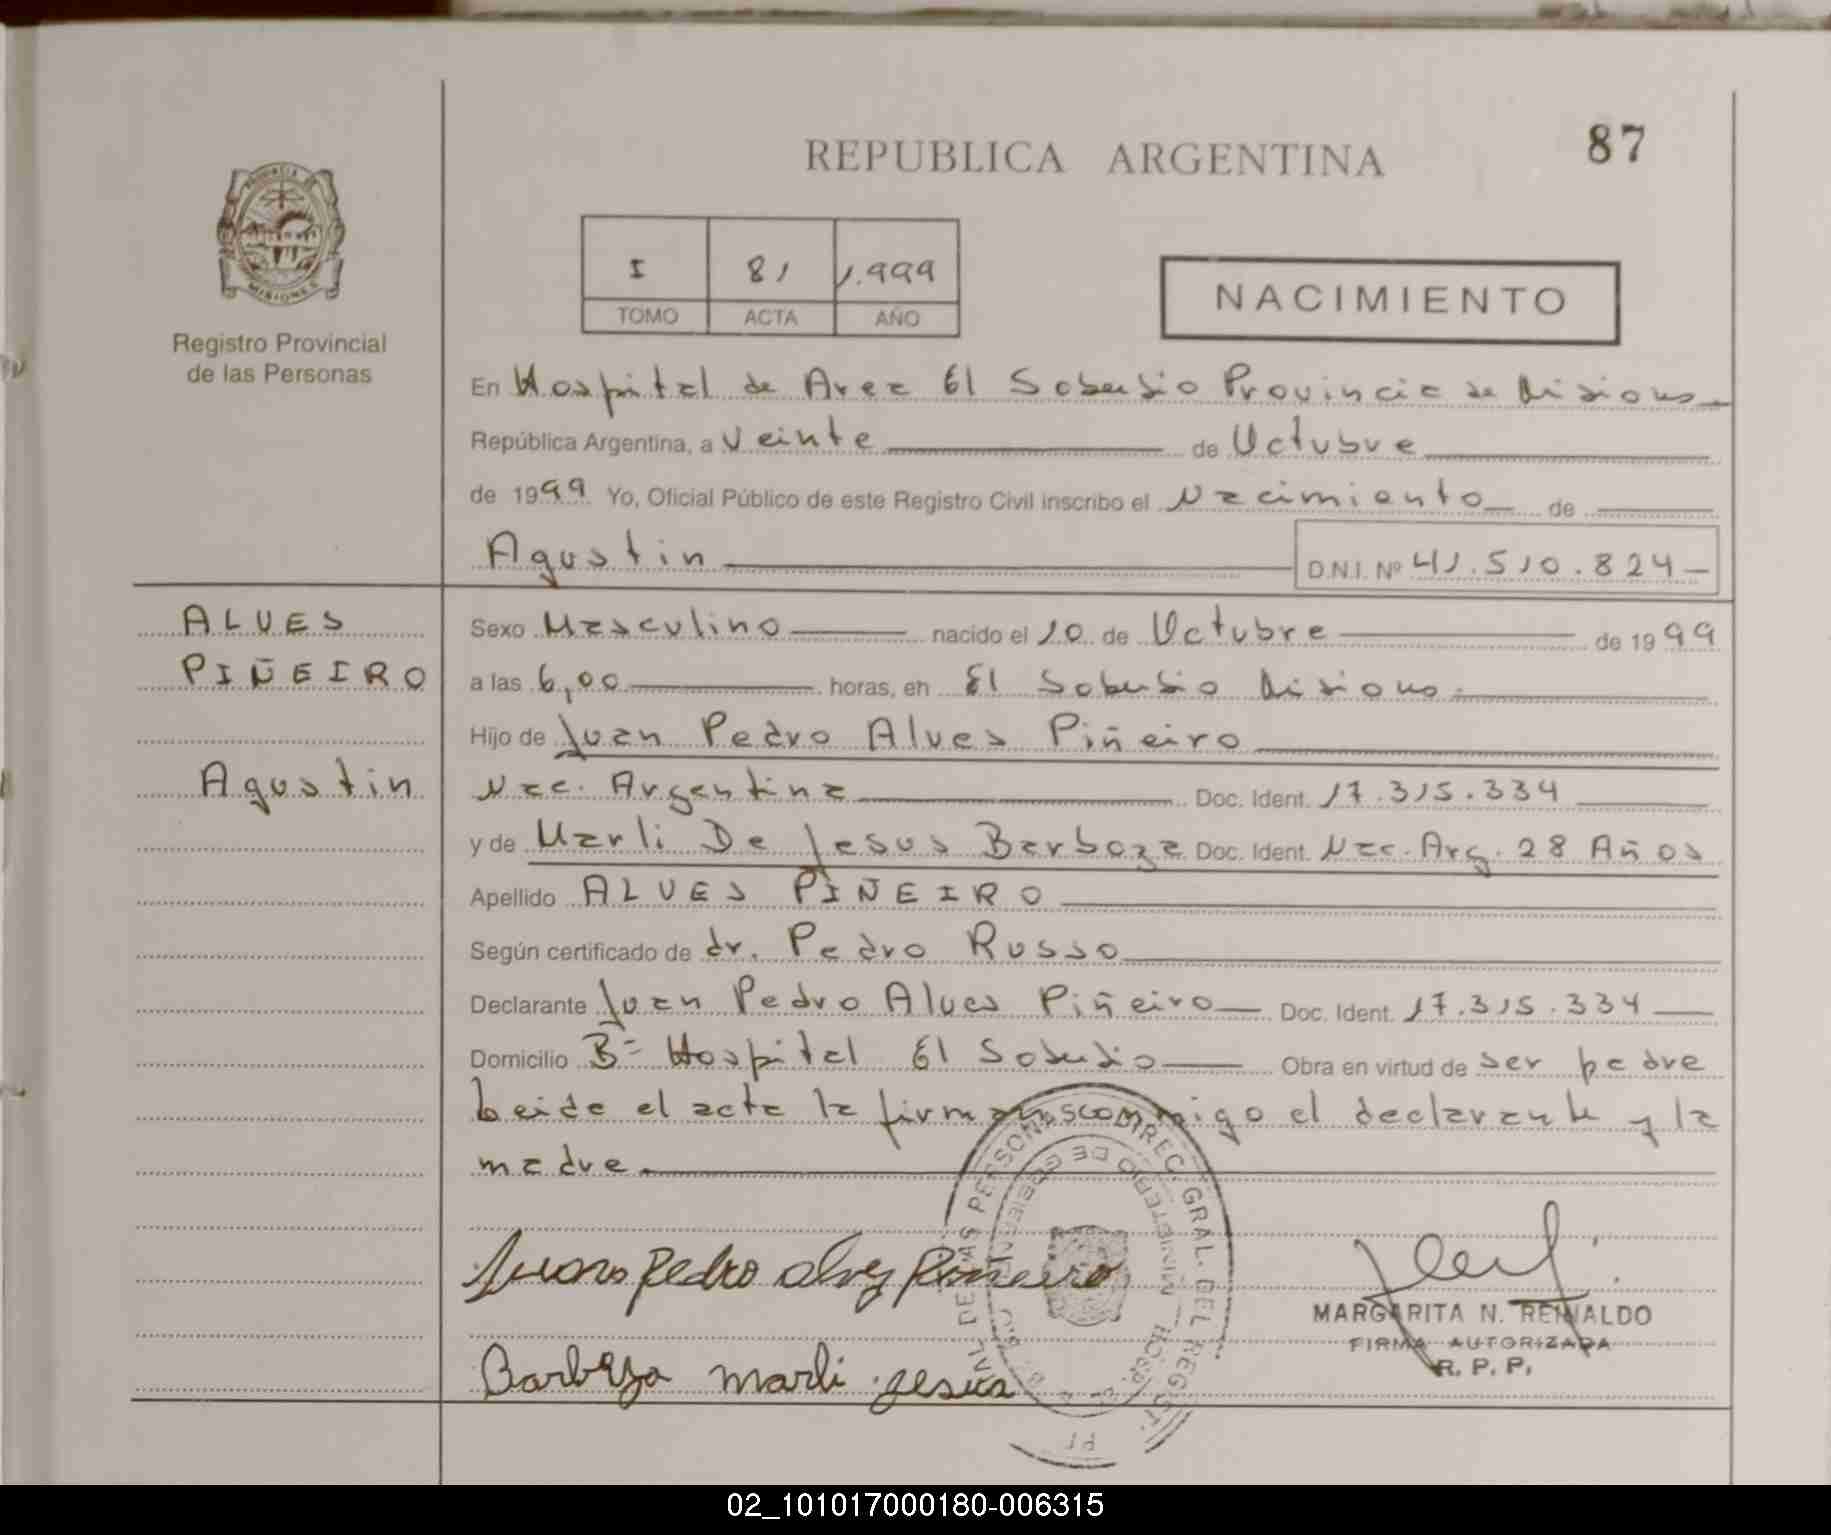 REPUBLICA ARGENTINA
87
PROVINCIA DE
MISIONES
Registro Provincial
de las Personas
I 81 1.999
TOMO ACTA AÑO
NACIMIENTO
En Hospital de Area El Soberbio Provincia de Misiones
República Argentina, a Veinte de Octubre
de 1999 Yo, Oficial Público de este Registro Civil inscribo el Nacimiento de
Agustin D.N.I. Nº 41.510.824
ALVES
PIÑEIRO
Agustin
Sexo Masculino nacido el 10 de Octubre de 1999
a las 6,00 horas, en El Soberbio Misiones.
Hijo de Juan Pedro Alves Piñeiro
Nac. Argentina Doc. Ident. 17.315.334
y de Marli De Jesus Barboza Doc. Ident. Nac. Arg. 28 Años
Apellido ALVES PIÑEIRO
Según certificado de dr. Pedro Russo
Declarante Juan Pedro Alves Piñeiro Doc. Ident. 17.315.334
Domicilio Bº Hospital El Soberbio Obra en virtud de ser padre
Leida el acta la firman conmigo el declarante y la
madre.
DIREC. GRAL. DEL REGIST. DE LAS PERSONAS
MINISTERIO DE GOBIERNO
HOSP.
Juan Pedro alves Piñeiro
MARGARITA N. REINALDO
FIRMA AUTORIZADA
R. P. P.
Barboza marli jesus
02_101017000180-006315